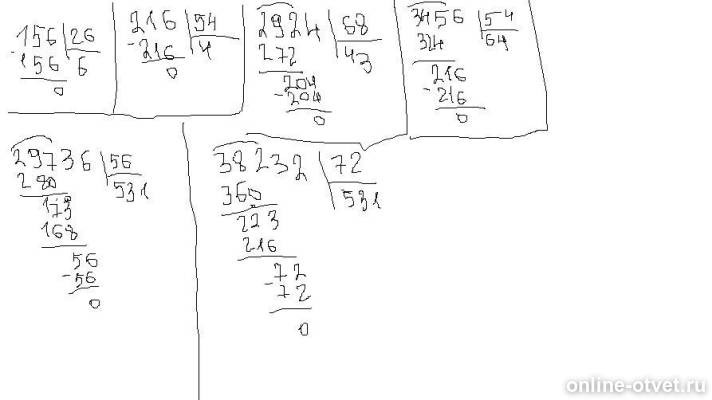 156 26
-156 6
0
216 54
-216 4
0
2924 68
272 43
204
-204
0
3456 54
324 64
216
-216
0
29736 56
280 531
173
168
56
-56
0
38232 72
360 531
223
216
72
-72
0
online-otvet.ru